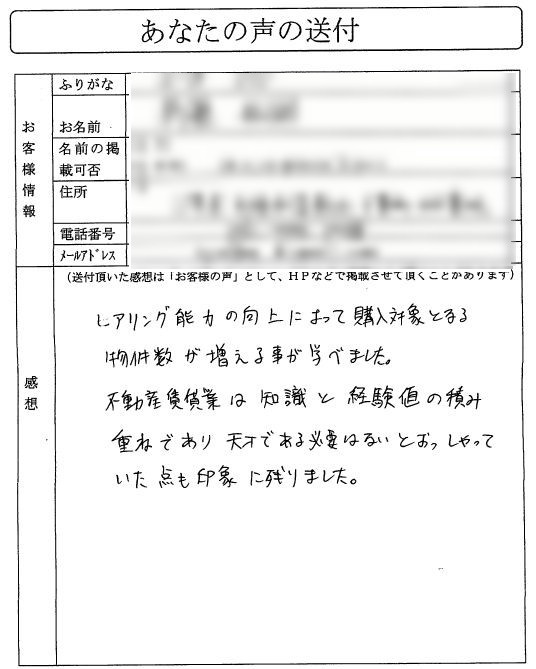 あなたの声の送付
お客様情報
ふりがな
お名前
名前の掲
載可否
住所
電話番号
メールアドレス
(送付頂いた感想は「お客様の声」として、HPなどで掲載させて頂くことがあります)
感想
ヒアリング能力の向上によって購入対象となる
物件数が増える事が学べました。
不動産賃貸業は知識と経験値の積み
重ねであり天才である必要はないとおっしゃって
いた点も印象に残りました。